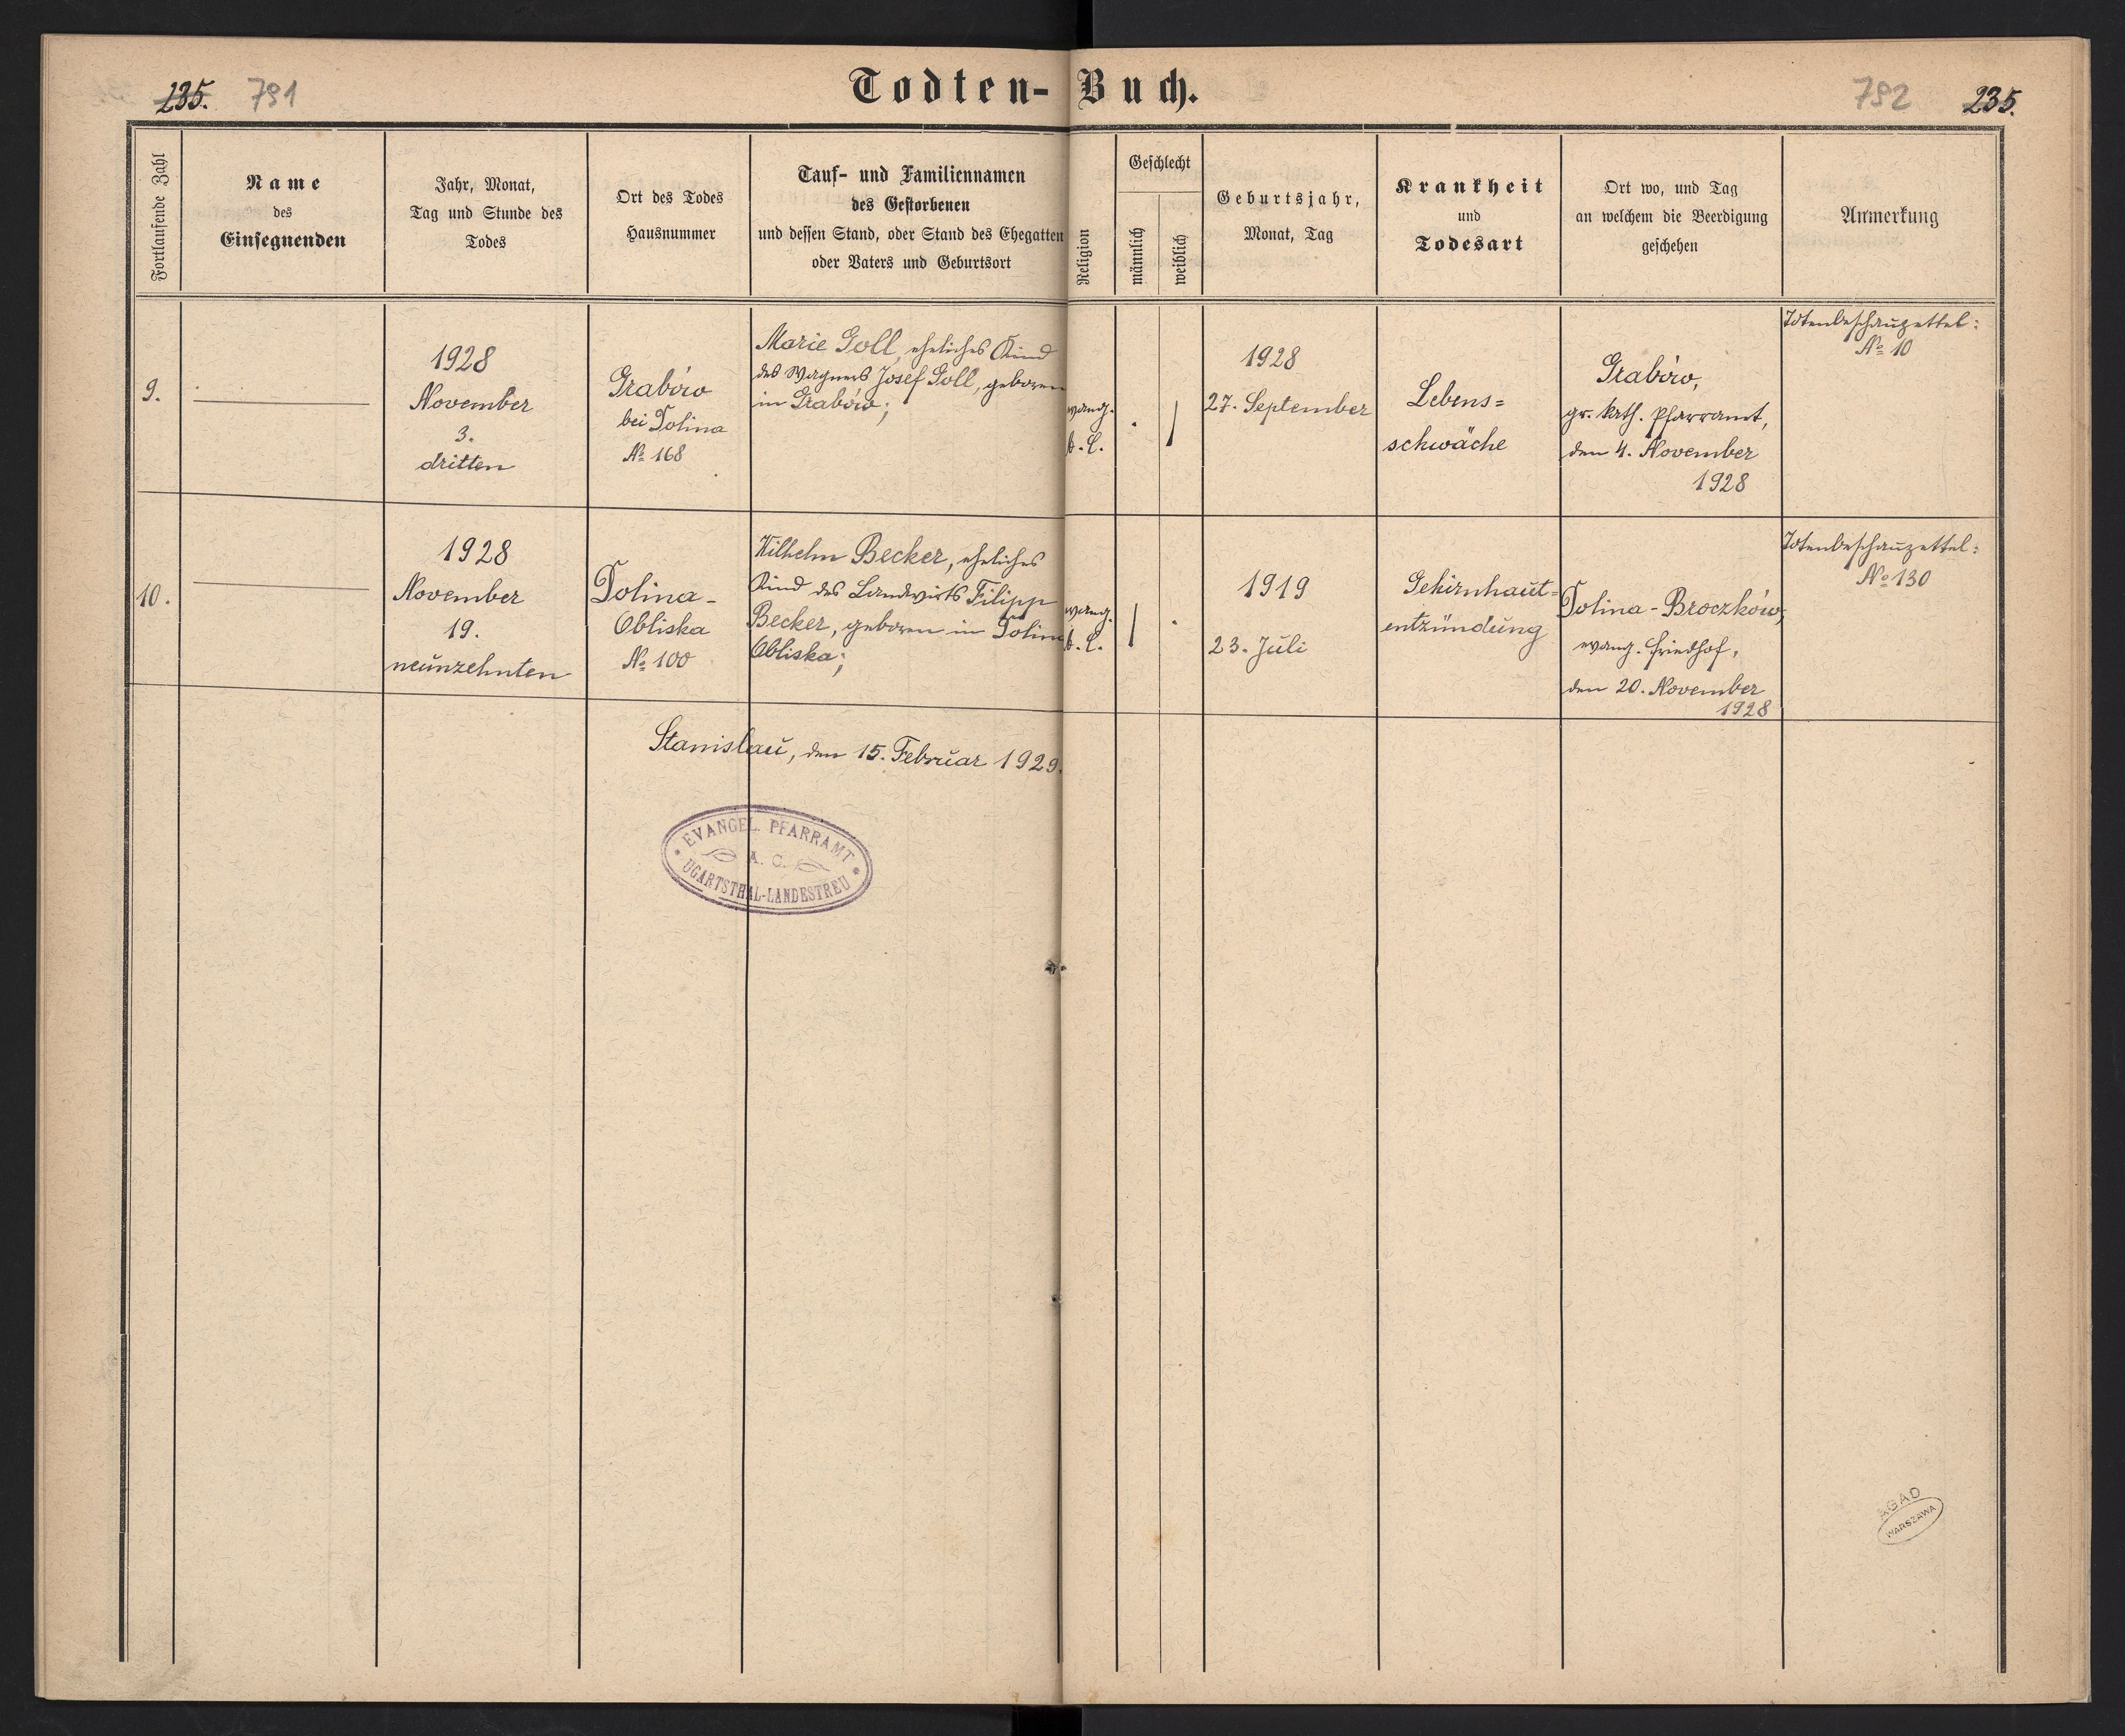 235. 791
Todten-Buch.
792 235.
Fortlaufende Zahl
Name
des
Einsegnenden
Jahr, Monat,
Tag und Stunde des
Todes
Ort des Todes
Hausnummer
Tauf- und Familiennamen
des Gestorbenen
und dessen Stand, oder Stand des Ehegatten
oder Vaters und Geburtsort
Religion
Geschlecht
männlich
weiblich
Geburtsjahr,
Monat, Tag
Krankheit
und
Todesart
Ort wo, und Tag
an welchem die Beerdigung
geschehen
Anmerkung
9.
1928
November
3.
dritten
Grabów
bei Dolina
№ 168
Marie Goll, eheliches Kind
des Wagners Josef Goll, geboren
in Grabów;
evang.
A. C.
1928
27. September
Lebens=
schwäche
Grabów,
gr. kath. Pfarramt,
den 4. November
1928
Totenbeschauzettel:
№ 10
10.
1928
November
19.
neunzehnten
Dolina-
Obliska
№ 100
Wilhelm Becker, eheliches
Kind des Landwirts Filipp
Becker, geboren in Dolina
Obliska;
evang.
A. C.
1919
23. Juli
Gehirnhaut=
entzündung
Dolina-Broczków,
evang. Friedhof,
den 20. November
1928
Totenbeschauzettel:
№ 130
Stanislau, den 15. Februar 1929.
EVANGEL. PFARRAMT
A. C.
UGARTSTHAL-LANDESTREU
AGAD
WARSZAWA